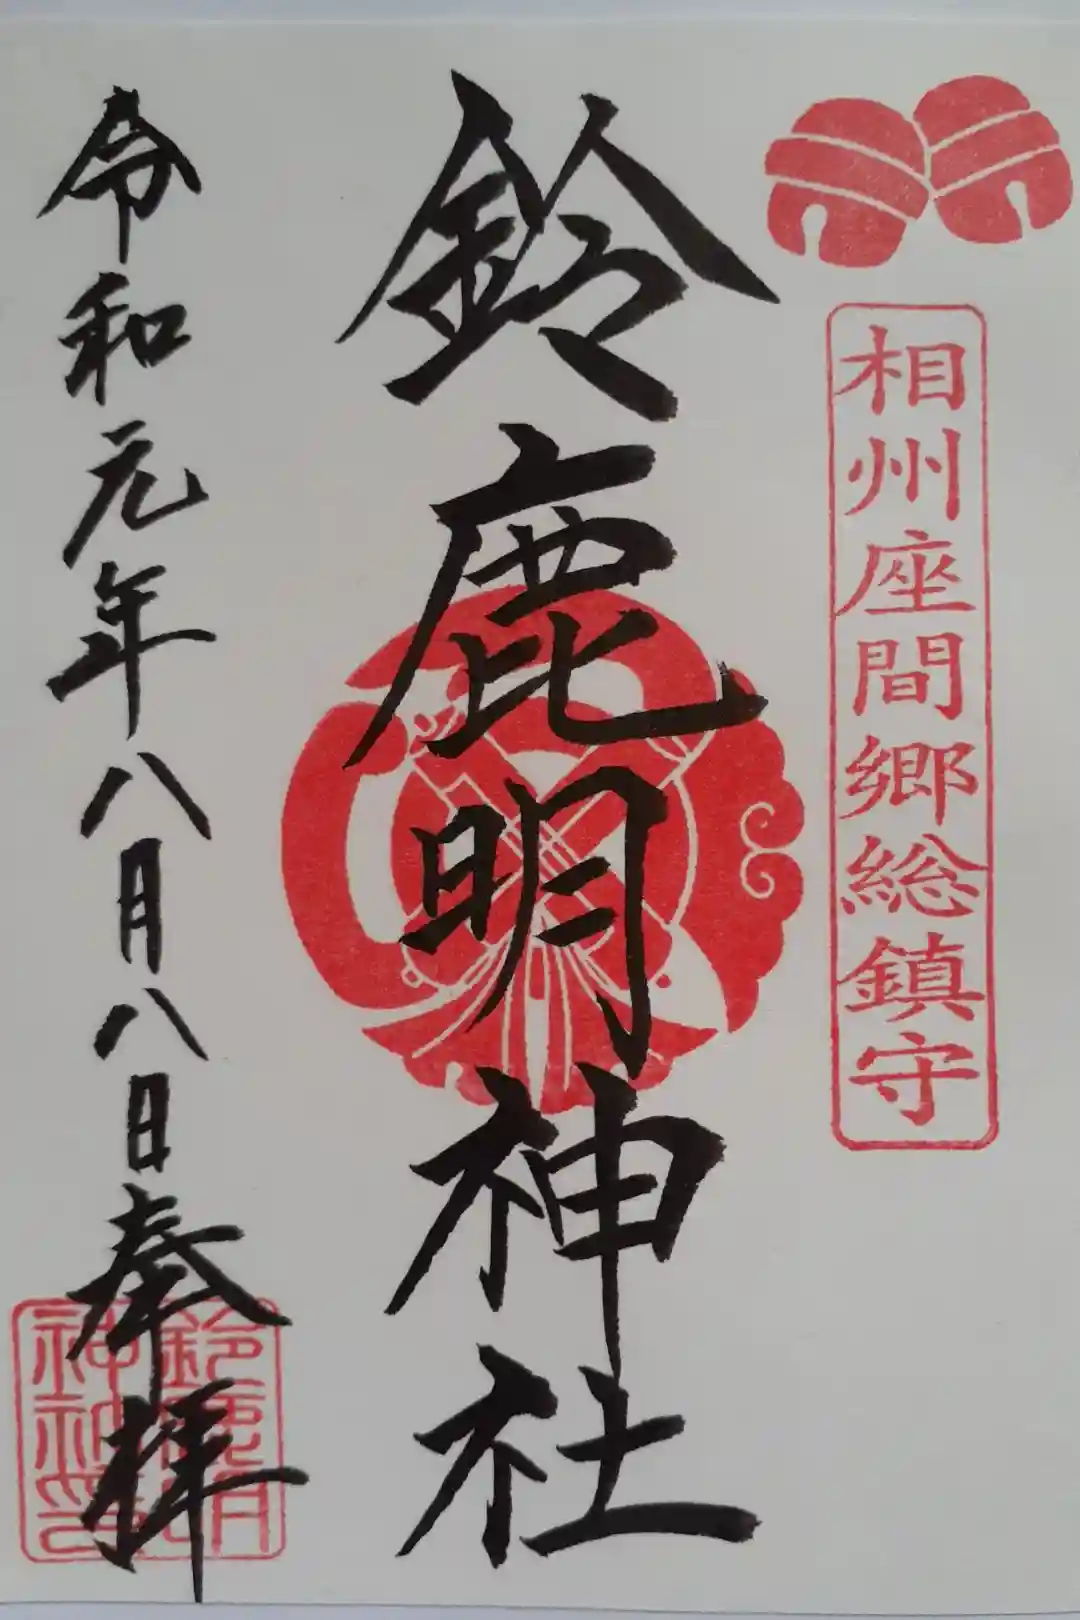 相州座間郷総鎮守
鈴鹿明神社
令和元年八月八日奉拝
鈴鹿明
神社印